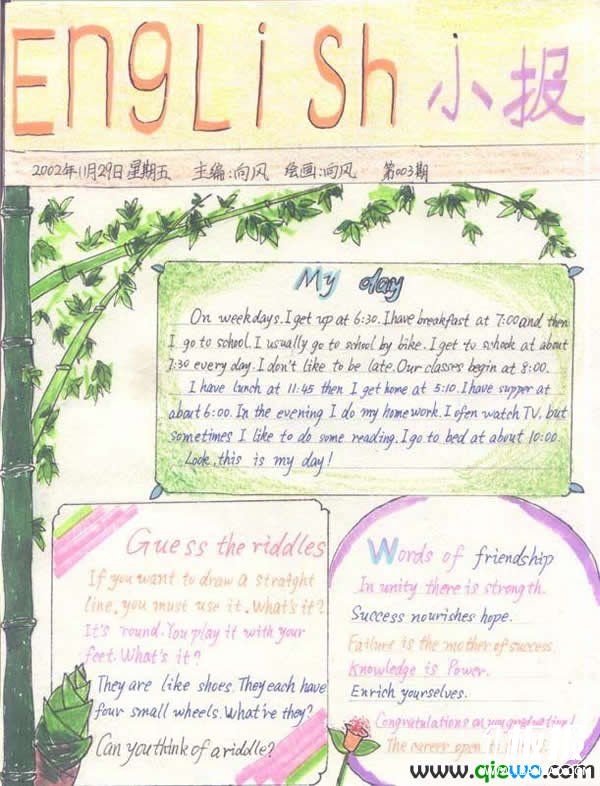 English 小报
2002年11月29日 星期五 主编:向风 绘画:向风 第003期
My day
On weekdays. I get up at 6:30. I have breakfast at 7:00 and then
I go to school. I usually go to school by bike. I get to school at about
7:30 every day. I don't like to be late. Our classes begin at 8:00.
I have lunch at 11:45 then I get home at 5:10. I have supper at
about 6:00. In the evening I do my homework. I ofen watch TV, but
sometimes I like to do some reading. I go to bed at about 10:00.
Look, this is my day!
Guess the riddles
If you want to draw a straight
line, you must use it. What's it?
It's round. You play it with your
feet. What's it?
They are like shoes. They each have
four small wheels. What're they?
Can you think of a riddle?
Words of friendship
In unity there is strength.
Success nourishes hope.
Failure is the mother of success.
Knowledge is Power.
Enrich yourselves.
Congratulations on your graduation!
The career open to
www.qiewo.com